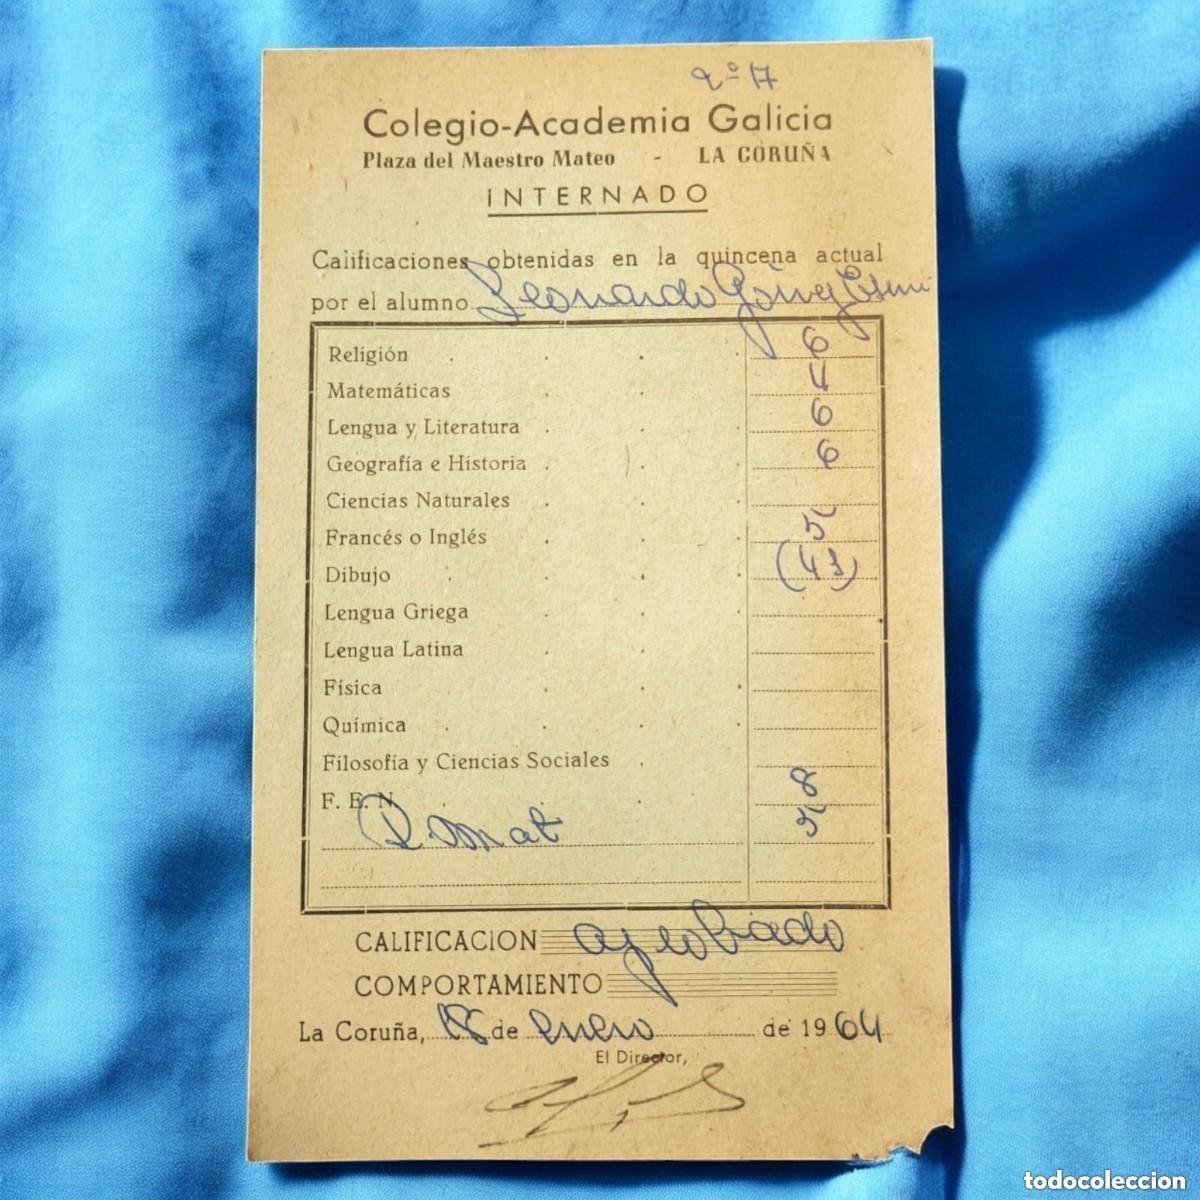 2º 17
Colegio-Academia Galicia
Plaza del Maestro Mateo - LA CORUÑA
INTERNADO
Calificaciones obtenidas en la quincena actual
por el alumno Leonardo
Religión 6
Matemáticas 4
Lengua y Literatura 6
Geografía e Historia 6
Ciencias Naturales
Francés o Inglés 5
Dibujo
Lengua Griega
Lengua Latina
Física
Química
Filosofía y Ciencias Sociales
F. E. N. 8
R. Mat 5
CALIFICACION aprobado
COMPORTAMIENTO
La Coruña, 18 de enero de 1964
El Director,
todocoleccion